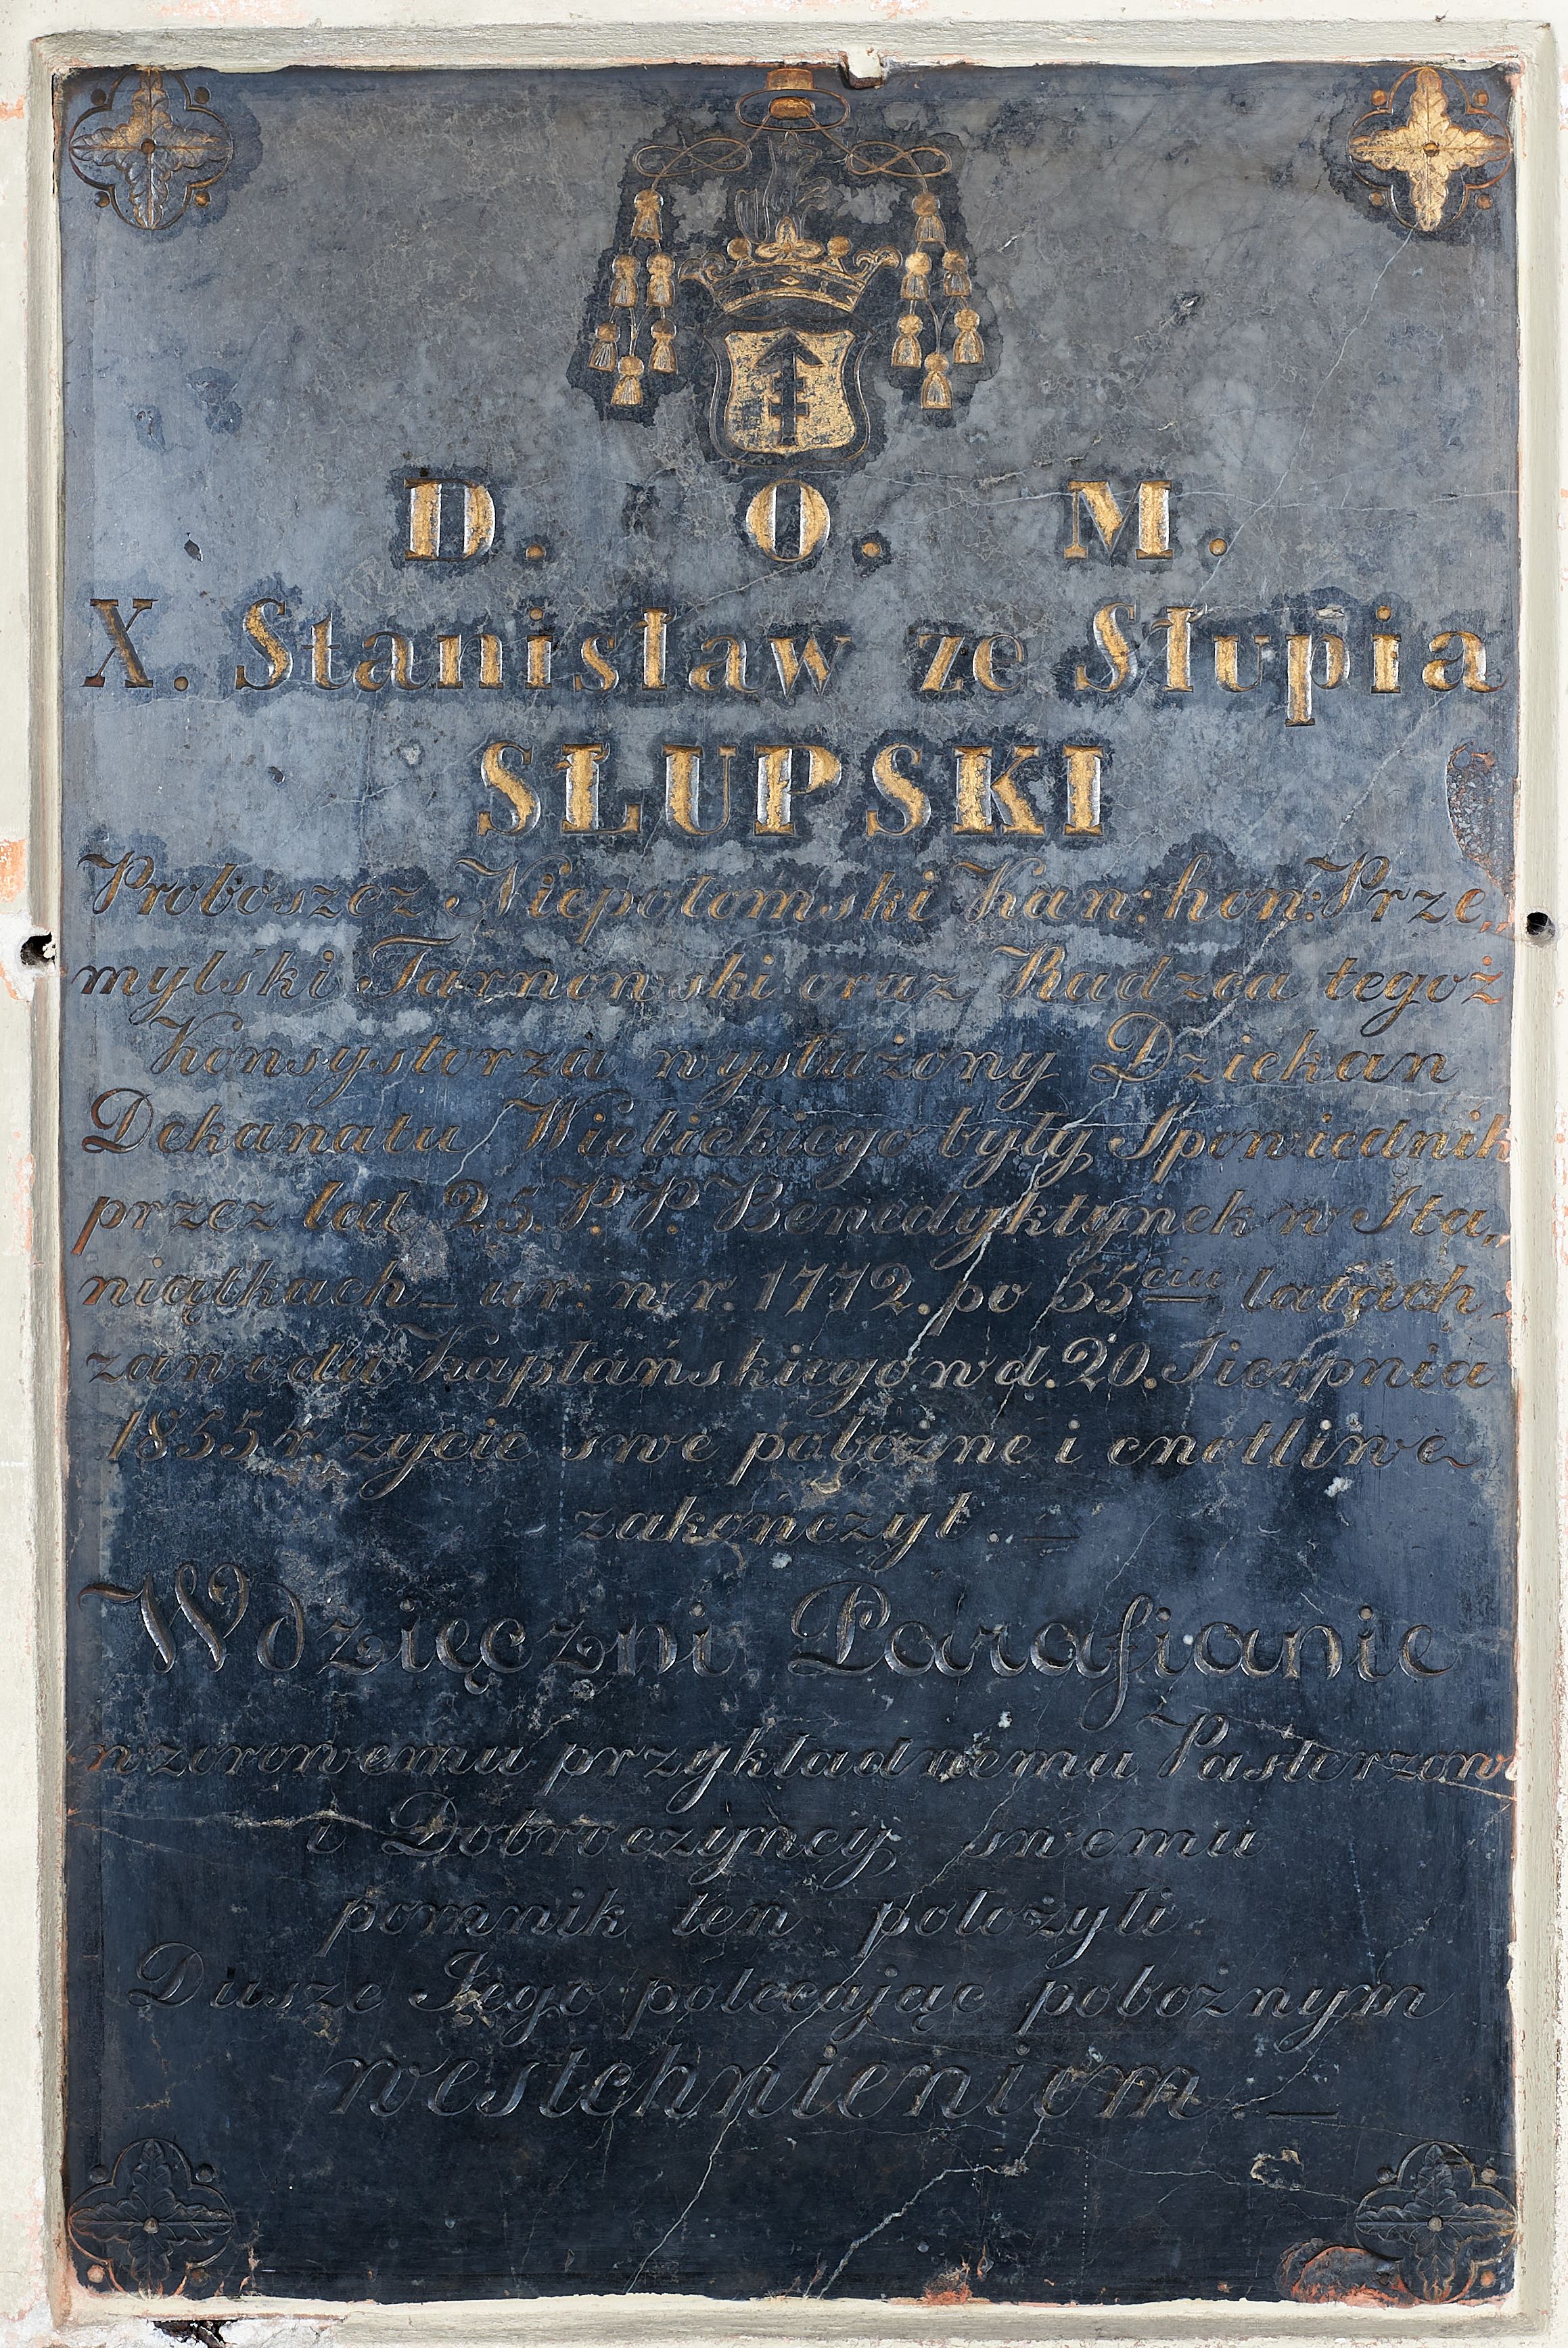 D. O. M.
X. Stanisław ze Słupia
SŁUPSKI
Proboszcz Niepołomski Kan: hon: Prze„
mylśki Tarnowski oraz Radzca tegoż
Konsystorza wysłużony Dziekan
Dekanatu Wielickiego były Spowiednik
przez lat 25. P.P. Benedyktynek w Sta„
niątkach _ ur: w r. 1772. po 55ciu latach
zawodu Kapłańskiego w d. 20. Sierpnia
1855 r. życie swe pobożne i cnotliwe
zakończył. _
Wdzięczni Parafianie
wzorowemu przykładnemu Pasterzowi
i Dobroczyńcy swemu
pomnik ten położyli.
Duszę Jego polecając pobożnym
westchnieniom. _